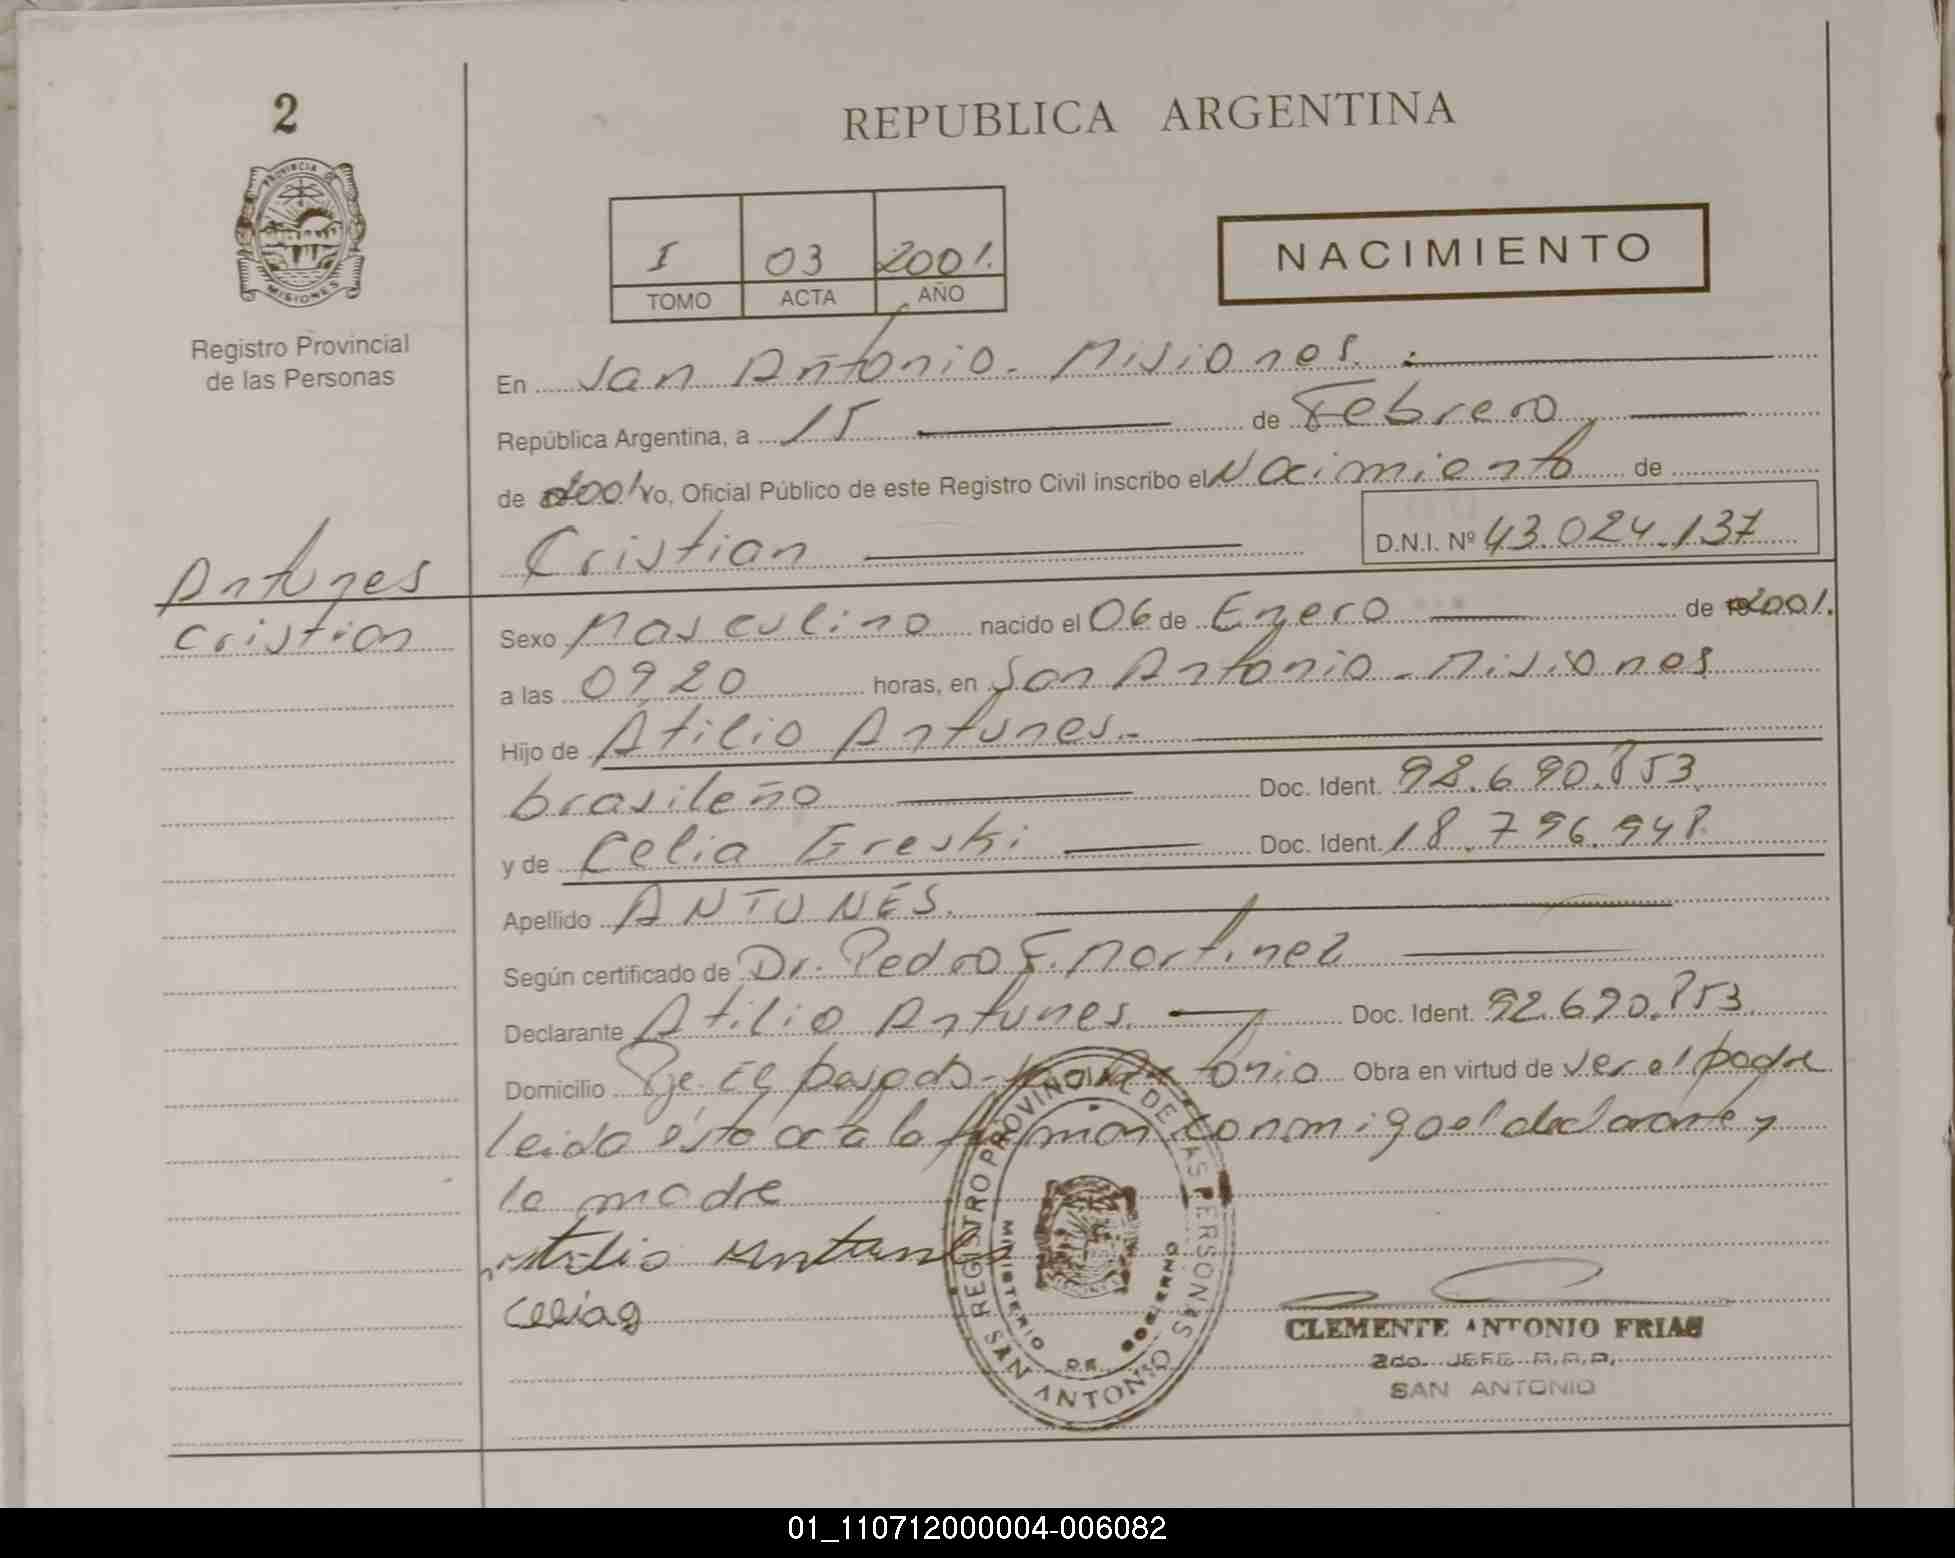 2
PROVINCIA DE
MISIONES
Registro Provincial
de las Personas
REPUBLICA ARGENTINA
I 03 2001.
TOMO ACTA AÑO
NACIMIENTO
En San Antonio - Misiones.
República Argentina, a 15 de Febrero
de 2001 Yo, Oficial Público de este Registro Civil inscribo el Nacimiento de
Cristian D.N.I. Nº 43.024.137
Antunes
Cristian
Sexo Masculino nacido el 06 de Enero de 2001.
a las 0920 horas, en San Antonio - Misiones
Hijo de Atilio Antunes.-
brasileño Doc. Ident. 92.690.853
y de Celia Greski Doc. Ident. 18.796.948
Apellido ANTUNES.
Según certificado de Dr. Pedro F. Martinez
Declarante Atilio Antunes. Doc. Ident. 92.690.853
Domicilio Pje. - San Antonio Obra en virtud de ser el padre
leida ésta acta la firman conmigo el declarante y
la madre
Atilio Antunes
Celia G
REGISTRO PROVINCIAL DE LAS PERSONAS
MINISTERIO DE GOBIERNO
SAN ANTONIO
CLEMENTE ANTONIO FRIAS
2do. JEFE R.P.P.
SAN ANTONIO
01_110712000004-006082